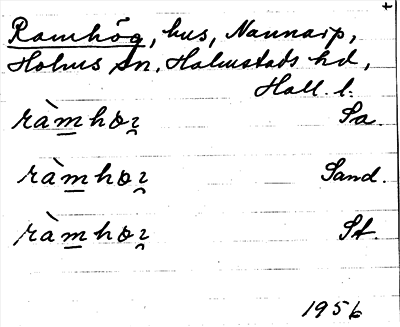 Ramhög, hus, Nannarp,
Holms sn. Halmstads hd,
Hall. l.
ràm̲hʚꝛ̯ Sa.
ràm̲hʚꝛ̯ Sand.
ràm̲hʚꝛ̯ St.
1956